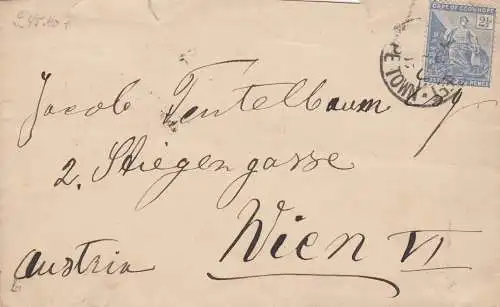 CAPE OF GOOD HOPE
2½
Jacob Teutelbaum
2. Stiegengasse
Wien VI
Austria